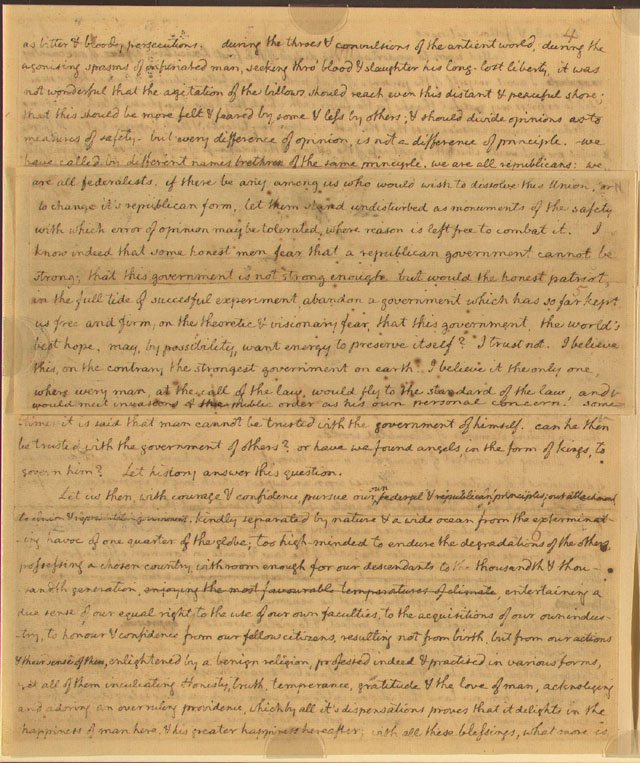 4
as bitter & bloody persecutions. during the throes & convulsions of the antient world, during the
agonising spasms of infuriated man, seeking thro' blood & slaughter his long-lost liberty, it was
not wonderful that the agitation of the billows should reach even this distant & peaceful shore;
that this should be more felt & feared by some & less by others; & should divide opinions as to
measures of safety. but every difference of opinion, is not a difference of principle. we
have called by different names brethren of the same principle. we are all republicans: we
are all federalists. if there be any among us who would wish to dissolve this Union, or
to change it's republican form, let them stand undisturbed as monuments of the safety
with which error of opinion may be tolerated, where reason is left free to combat it. I
know indeed that some honest men fear that a republican government cannot be
strong; that this government is not strong enough. but would the honest patriot,
in the full tide of successful experiment, abandon a government which has so far kept
us free and firm, on the theoretic & visionary fear, that this government, the world's
best hope, may, by possibility, want energy to preserve itself? I trust not. I believe
this, on the contrary, the strongest government on earth. I believe it the only one,
where every man, at the call of the law, would fly to the standard of the law, and
would meet invasions of the public order as his own personal concern. some
times it is said that man cannot be trusted with the government of himself. can he then
be trusted with the government of others? or have we found angels, in the form of kings, to
govern him? Let history answer this question.
Let us then, with courage & confidence pursue our own federal & republican principles; our attachment
to union & representative government. kindly separated by nature & a wide ocean from the exterminat-
-ing havoc of one quarter of the globe; too high-minded to endure the degradations of the others,
possessing a chosen country, with room enough for our descendants to the thousandth & thou-
-sandth generation, enjoying the most favourable temperatures of climate, entertaining a
due sense of our equal right to the use of our own faculties, to the acquisitions of our own indus-
-try, to honour & confidence from our fellow citizens, resulting not from birth, but from our actions
& their sense of them, enlightened by a benign religion, professed indeed & practised in various forms,
yet all of them inculcating honesty, truth, temperance, gratitude & the love of man, acknoleging
and adoring an overruling providence, which by all it's dispensations proves that it delights in the
happiness of man here, & his greater happiness hereafter; with all these blessings, what more is